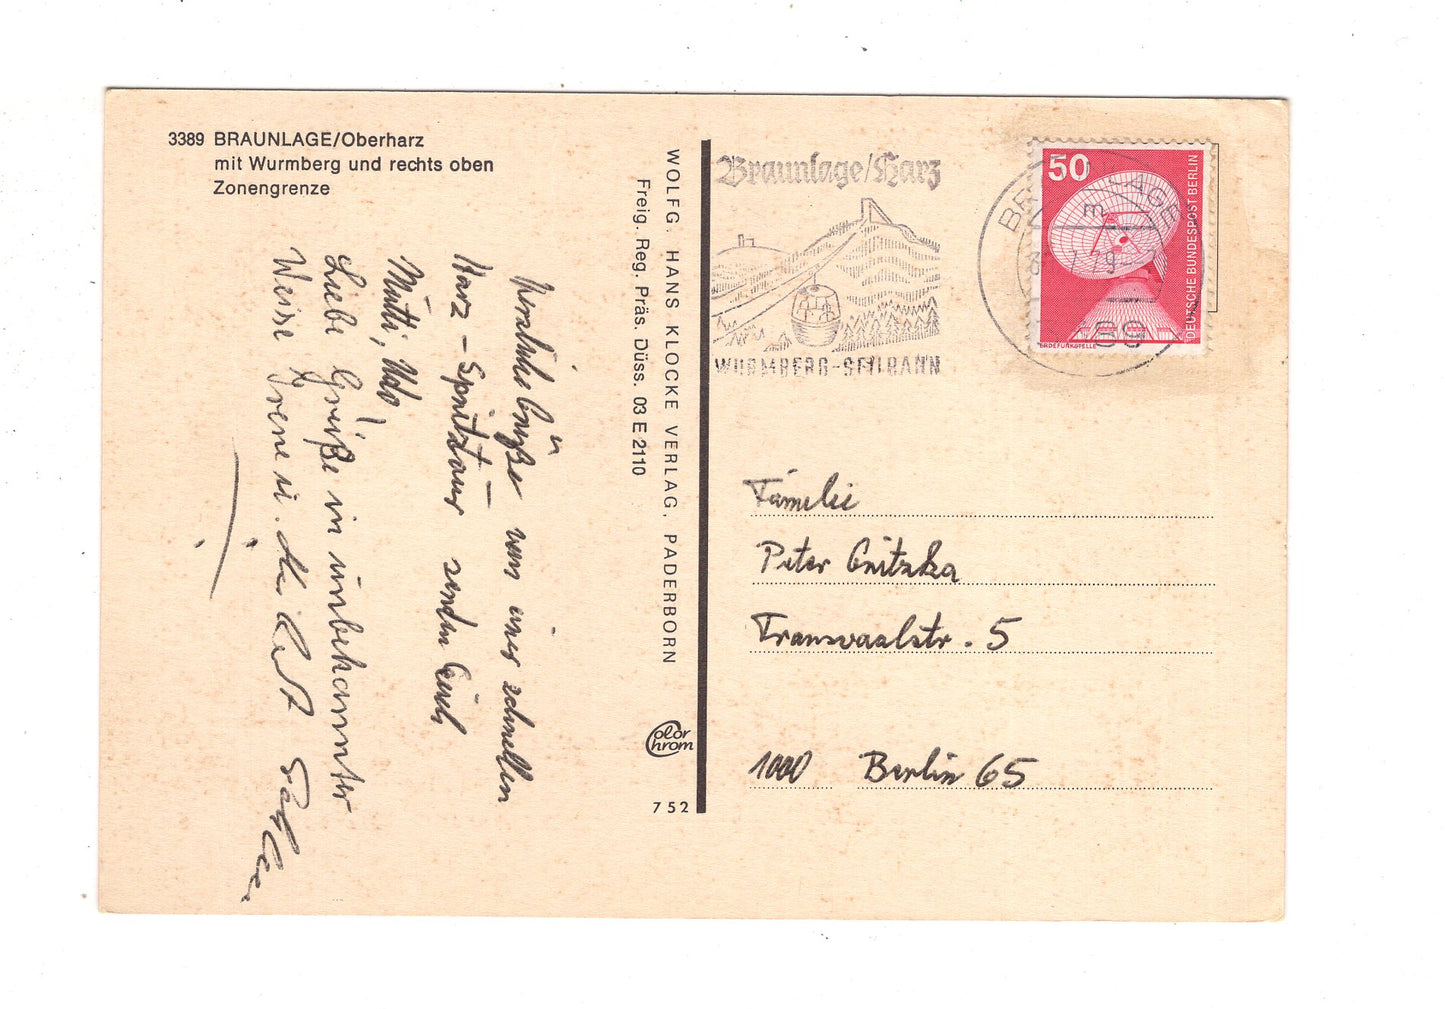 3389 BRAUNLAGE/Oberharz
mit Wurmberg und rechts oben
Zonengrenze
Herzliche Grüße von einer schnellen
Harz-Spritztour senden Euch
Mutti, Udo
Liebe Grüße in unbekannter
Weise Irene u.
WOLFG. HANS KLOCKE VERLAG, PADERBORN
Freig. Reg. Präs. Düss. 03 E 2110
Color Chrom
752
Braunlage/Harz
WURMBERG-SEILBAHN
50
DEUTSCHE BUNDESPOST BERLIN
ERDEFUNKSTELLE
BRAUNLAGE
Familie
Peter Gritzka
Transvaalstr. 5
1000 Berlin 65